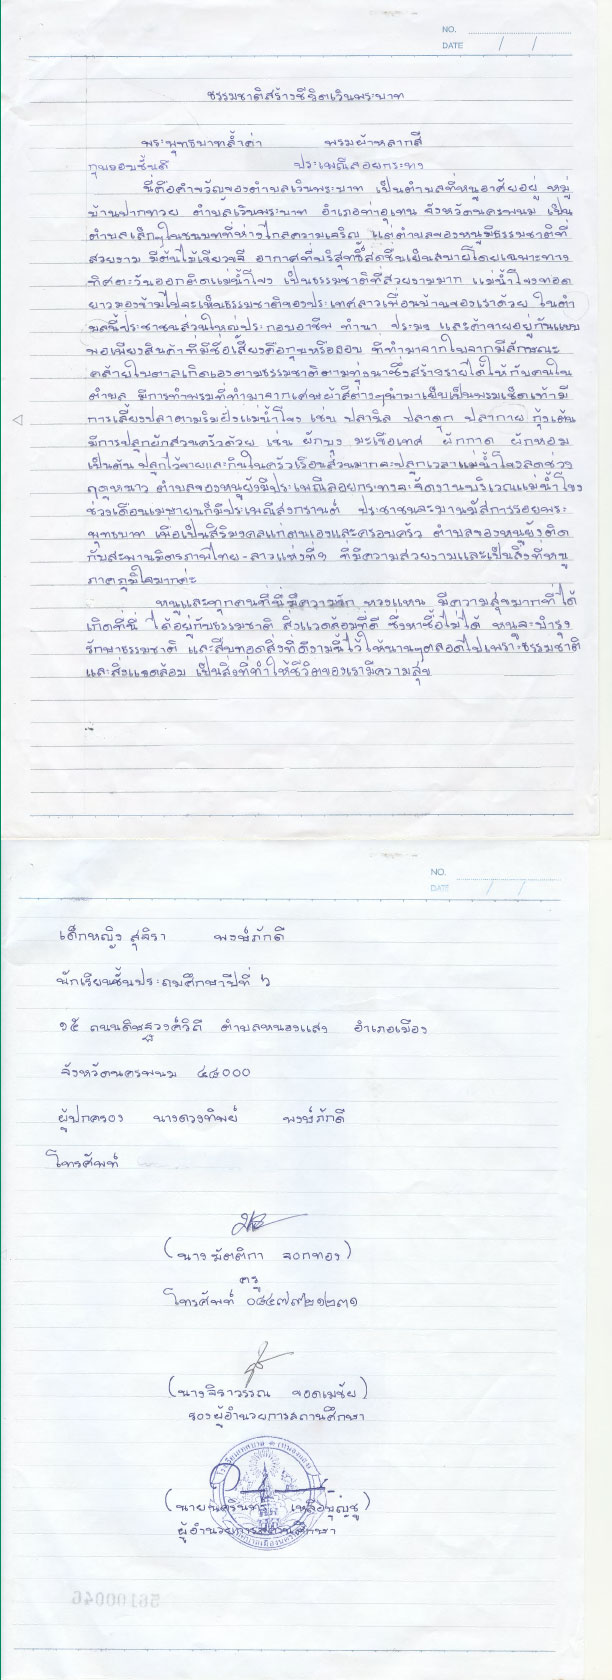 NO.
DATE / /
ธรรมชาติสร้างชีวิตเวินพระบาท
พระพุทธบาทล้ำค่า พรมผ้าหลากสี
กุบจอบชั้นดี ประเพณีลอยกระทง
นี่คือคำขวัญของตำบลเวินพระบาท เป็นตำบลที่หนูอาศัยอยู่ หมู่
บ้านปากทวย ตำบลเวินพระบาท อำเภอท่าอุเทน จังหวัดนครพนม เป็น
ตำบลเล็กๆในชนบทที่ห่างไกลความเจริญ แต่ตำบลของหนูมีธรรมชาติที่
สวยงาม มีต้นไม้เขียวขจี อากาศที่บริสุทธิ์สดชื่นเย็นสบายโดยเฉพาะทาง
ทิศตะวันออกติดแม่น้ำโขง เป็นธรรมชาติที่สวยงามมาก แม่น้ำโขงทอด
ยาวมองข้ามไปจะเห็นธรรมชาติของประเทศลาวเพื่อนบ้านของเราด้วย ในตำ
บลนี้ประชาชนส่วนใหญ่ประกอบอาชีพ ทำนา ประมง และค้าขายอยู่กันแบบ
พอเพียงสินค้าที่มีชื่อเสียงคือกุบหรืองอบ ที่ทำมาจากใบจากมีลักษณะ
คล้ายใบตาลเกิดเองตามธรรมชาติตามทุ่งนาซึ่งสร้างรายได้ให้กับคนใน
ตำบล มีการทำพรมที่ทำมาจากเศษผ้าสีต่างๆนำมาเย็บเป็นพรมเช็ดเท้ามี
การเลี้ยงปลาตามริมฝั่งแม่น้ำโขง เช่น ปลานิล ปลาดุก ปลากาย กุ้งเต้น
มีการปลูกผักสวนครัวด้วย เช่น ผักบุ้ง มะเขือเทศ ผักกาด ผักหอม
เป็นต้น ปลูกไว้ขายและกินในครัวเรือนส่วนมากจะปลูกเวลาแม่น้ำโขงลดช่วง
ฤดูหนาว ตำบลของหนูยังมีประเพณีลอยกระทงจะจัดงานบริเวณแม่น้ำโขง
ช่วงเดือนเมษายนก็มีประเพณีสงกรานต์ ประชาชนจะมานมัสการรอยพระ
พุทธบาท เพื่อเป็นสิริมงคลแก่ตนเองและครอบครัว ตำบลของหนูยังติด
กับสะพานมิตรภาพไทย-ลาวแห่งที่๓ ที่มีความสวยงามและเป็นสิ่งที่หนู
ภาคภูมิใจมากค่ะ
หนูและทุกคนที่นี่มีความรัก หวงแหน มีความสุขมากที่ได้
เกิดที่นี่ ได้อยู่กับธรรมชาติ สิ่งแวดล้อมที่ดี ซึ่งหาซื้อไม่ได้ หนูจะบำรุง
รักษาธรรมชาติ และสืบทอดสิ่งที่ดีงามนี้ไว้ให้นานๆตลอดไปเพราะธรรมชาติ
และสิ่งแวดล้อม เป็นสิ่งที่ทำให้ชีวิตของเรามีความสุข
NO.
DATE / /
เด็กหญิง สุจิรา พงษ์ภักดี
นักเรียนชั้นประถมศึกษาปีที่ ๖
๑๕ ถนนดิษฐวงศ์วิถี ตำบลหนองแสง อำเภอเมือง
จังหวัดนครพนม ๔๘๐๐๐
ผู้ปกครอง นางดวงทิพย์ พงษ์ภักดี
โทรศัพท์
(นางมัตติกา จอกทอง)
ครู
โทรศัพท์ ๐๘๔๗๙๒๑๒๓๑
(นางจิราวรรณ ยอดเมชัย)
รองผู้อำนวยการสถานศึกษา
(นาย เหลือบุญชู)
ผู้อำนวยการสถานศึกษา
56100046